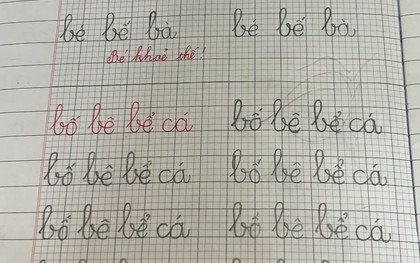 bé bế bà bé bế bà
Bé khai thế!
bố bê bể cá bố bê bể cá
bố bê bể cá bố bê bể cá
bố bê bể cá bố bê bể cá